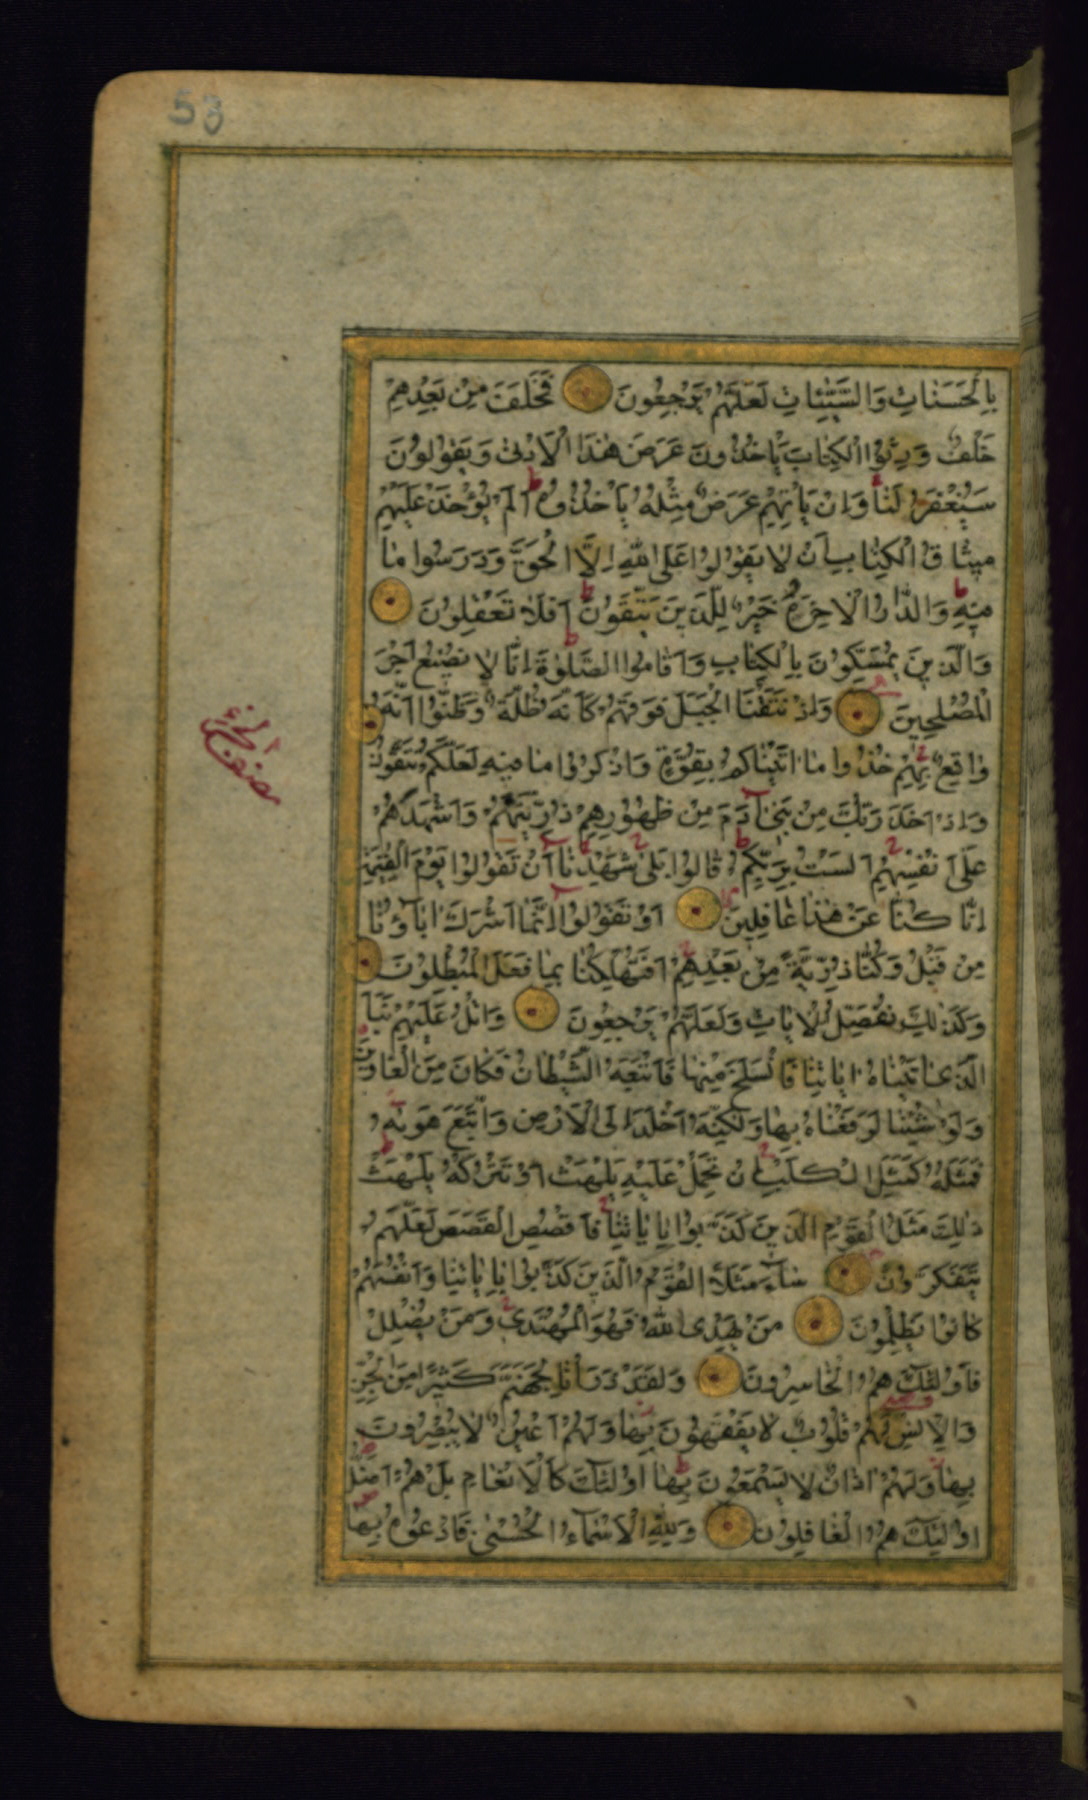 53
بِالْحَسَنَاتِ وَالسَّيِّئَاتِ لَعَلَّهُمْ يَرْجِعُونَ فَخَلَفَ مِنْ بَعْدِهِمْ
خَلْفٌ وَرِثُوا الْكِتَابَ يَأْخُذُونَ عَرَضَ هٰذَا الْاَدْنٰى وَيَقُولُونَ
سَيُغْفَرُ لَنَا وَاِنْ يَأْتِهِمْ عَرَضٌ مِثْلُهُ يَأْخُذُوهُ اَلَمْ يُؤْخَذْ عَلَيْهِمْ
مِيثَاقُ الْكِتَابِ اَنْ لَا يَقُولُوا عَلَى اللّٰهِ اِلَّا الْحَقَّ وَدَرَسُوا مَا
فِيهِ وَالدَّارُ الْاٰخِرَةُ خَيْرٌ لِلَّذِينَ يَتَّقُونَ اَفَلَا تَعْقِلُونَ
وَالَّذِينَ يُمَسِّكُونَ بِالْكِتَابِ وَاَقَامُوا الصَّلٰوةَ اِنَّا لَا نُضِيعُ اَجْرَ
الْمُصْلِحِينَ وَاِذْ نَتَقْنَا الْجَبَلَ فَوْقَهُمْ كَاَنَّهُ ظُلَّةٌ وَظَنُّوا اَنَّهُ
وَاقِعٌ بِهِمْ خُذُوا مَا اٰتَيْنَاكُمْ بِقُوَّةٍ وَاذْكُرُوا مَا فِيهِ لَعَلَّكُمْ تَتَّقُونَ
وَاِذْ اَخَذَ رَبُّكَ مِنْ بَنِي اٰدَمَ مِنْ ظُهُورِهِمْ ذُرِّيَّتَهُمْ وَاَشْهَدَهُمْ
عَلٰى اَنْفُسِهِمْ اَلَسْتُ بِرَبِّكُمْ قَالُوا بَلٰى شَهِدْنَا اَنْ تَقُولُوا يَوْمَ الْقِيٰمَةِ
اِنَّا كُنَّا عَنْ هٰذَا غَافِلِينَ اَوْ تَقُولُوا اِنَّمَا اَشْرَكَ اٰبَاؤُنَا
مِنْ قَبْلُ وَكُنَّا ذُرِّيَّةً مِنْ بَعْدِهِمْ اَفَتُهْلِكُنَا بِمَا فَعَلَ الْمُبْطِلُونَ
وَكَذٰلِكَ نُفَصِّلُ الْاٰيَاتِ وَلَعَلَّهُمْ يَرْجِعُونَ وَاتْلُ عَلَيْهِمْ نَبَاَ
الَّذِي اٰتَيْنَاهُ اٰيَاتِنَا فَانْسَلَخَ مِنْهَا فَاَتْبَعَهُ الشَّيْطَانُ فَكَانَ مِنَ الْغَاوِينَ
وَلَوْ شِئْنَا لَرَفَعْنَاهُ بِهَا وَلٰكِنَّهُ اَخْلَدَ اِلَى الْاَرْضِ وَاتَّبَعَ هَوٰيهُ
فَمَثَلُهُ كَمَثَلِ الْكَلْبِ اِنْ تَحْمِلْ عَلَيْهِ يَلْهَثْ اَوْ تَتْرُكْهُ يَلْهَثْ
ذٰلِكَ مَثَلُ الْقَوْمِ الَّذِينَ كَذَّبُوا بِاٰيَاتِنَا فَاقْصُصِ الْقَصَصَ لَعَلَّهُمْ
يَتَفَكَّرُونَ سَاءَ مَثَلًا الْقَوْمُ الَّذِينَ كَذَّبُوا بِاٰيَاتِنَا وَاَنْفُسَهُمْ
كَانُوا يَظْلِمُونَ مَنْ يَهْدِى اللّٰهُ فَهُوَ الْمُهْتَدِي وَمَنْ يُضْلِلْ
فَاُولٰئِكَ هُمُ الْخَاسِرُونَ وَلَقَدْ ذَرَأْنَا لِجَهَنَّمَ كَثِيرًا مِنَ الْجِنِّ
وَالْاِنْسِ لَهُمْ قُلُوبٌ لَا يَفْقَهُونَ بِهَا وَلَهُمْ اَعْيُنٌ لَا يُبْصِرُونَ
بِهَا وَلَهُمْ اٰذَانٌ لَا يَسْمَعُونَ بِهَا اُولٰئِكَ كَالْاَنْعَامِ بَلْ هُمْ اَضَلُّ
اُولٰئِكَ هُمُ الْغَافِلُونَ وَلِلّٰهِ الْاَسْمَاءُ الْحُسْنٰى فَادْعُوهُ بِهَا